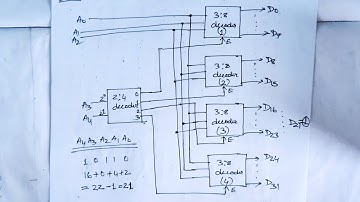 A0
A1
A2
3:8
decoder
(1)
E
D0
D7
3:8
decoder
(2)
E
D8
D15
A3
A4
2^0
2^1
2:4
decoder
0
1
2
3
3:8
decoder
(3)
E
D16
D23
3:8
decoder
(4)
E
D24
D31
A4 A3 A2 A1 A0
1 0 1 1 0
16 + 0 + 4 + 2
= 22 - 1 = 21